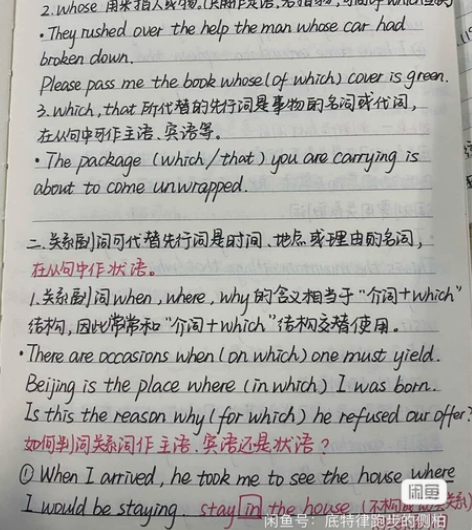 2. whose 用来指人或物,(只用作定语,
• They rushed over the help the man whose car had
broken down.
Please pass me the book whose (of which) cover is green.
3. which, that 所代替的先行词是事物的名词或代词,
在从句中可作主语、宾语等。
• The package (which/that) you are carrying is
about to come unwrapped.
二. 关系副词可代替先行词是时间、地点或理由的名词,
在从句中作状语。
1. 关系副词 when, where, why 的含义相当于“介词+which”
结构, 因此常常和“介词+which”结构交替使用。
• There are occasions when (on which) one must yield.
Beijing is the place where (in which) I was born.
Is this the reason why (for which) he refused our offer?
如何判词关系词作主语、宾语还是状语?
① When I arrived, he took me to see the house where
I would be staying. stay in the house. (不构成
闲鱼
闲鱼号:底特律跑步的侧柏